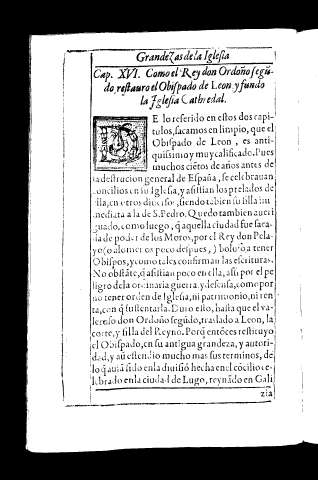 Grandezas de la Iglesia
Cap. XVI. Como el Rey don Ordoño segũ-
do, restauro el Obispado de Leon, y fundo
la Iglesia Cathedal.
DE lo referido en estos dos capi-
tulos, sacamos en limpio, que el
Obispado de Leon, es anti-
quissimo y muy calificado. Pues
muchos ciẽtos de años antes de
la destruciõn general de España, se celebrauan
concilios en su Iglesia, y assistian los prelados de
ella, en otros diocesis, siendo tabien su silla inm-
mediata a la de S. Pedro. Quedo tambien aueri-
guado, como luego, q̃ aquella ciudad fue saca-
da de poder de los Moros, por el Rey don Pela-
yo (o alomenos poco despues,) boluio a tener
Obispos, y como tales confirman las escrituras.
No obstãte, q̃ assistian poco en ella, assi por el pe-
ligro de la ordinaria guerra, y defensa, como por
no tener orden de Iglesia, ni patrimonio, ni ren-
ta, con q̃ sustentarla. Duro esto, hasta que el va-
leroso don Ordoño segũdo, traslado a Leon, la
corte, y silla del Reyno. Porq̃ entõces restituyo
el Obispado, en su antigua grandeza, y autori-
dad, y aũ estendio mucho mas sus terminos, de
lo q̃ auiã sido en la diuisiõ hecha en el cõcilio ce-
lebrado en la ciudad de Lugo, reynãdo en Gali
zia